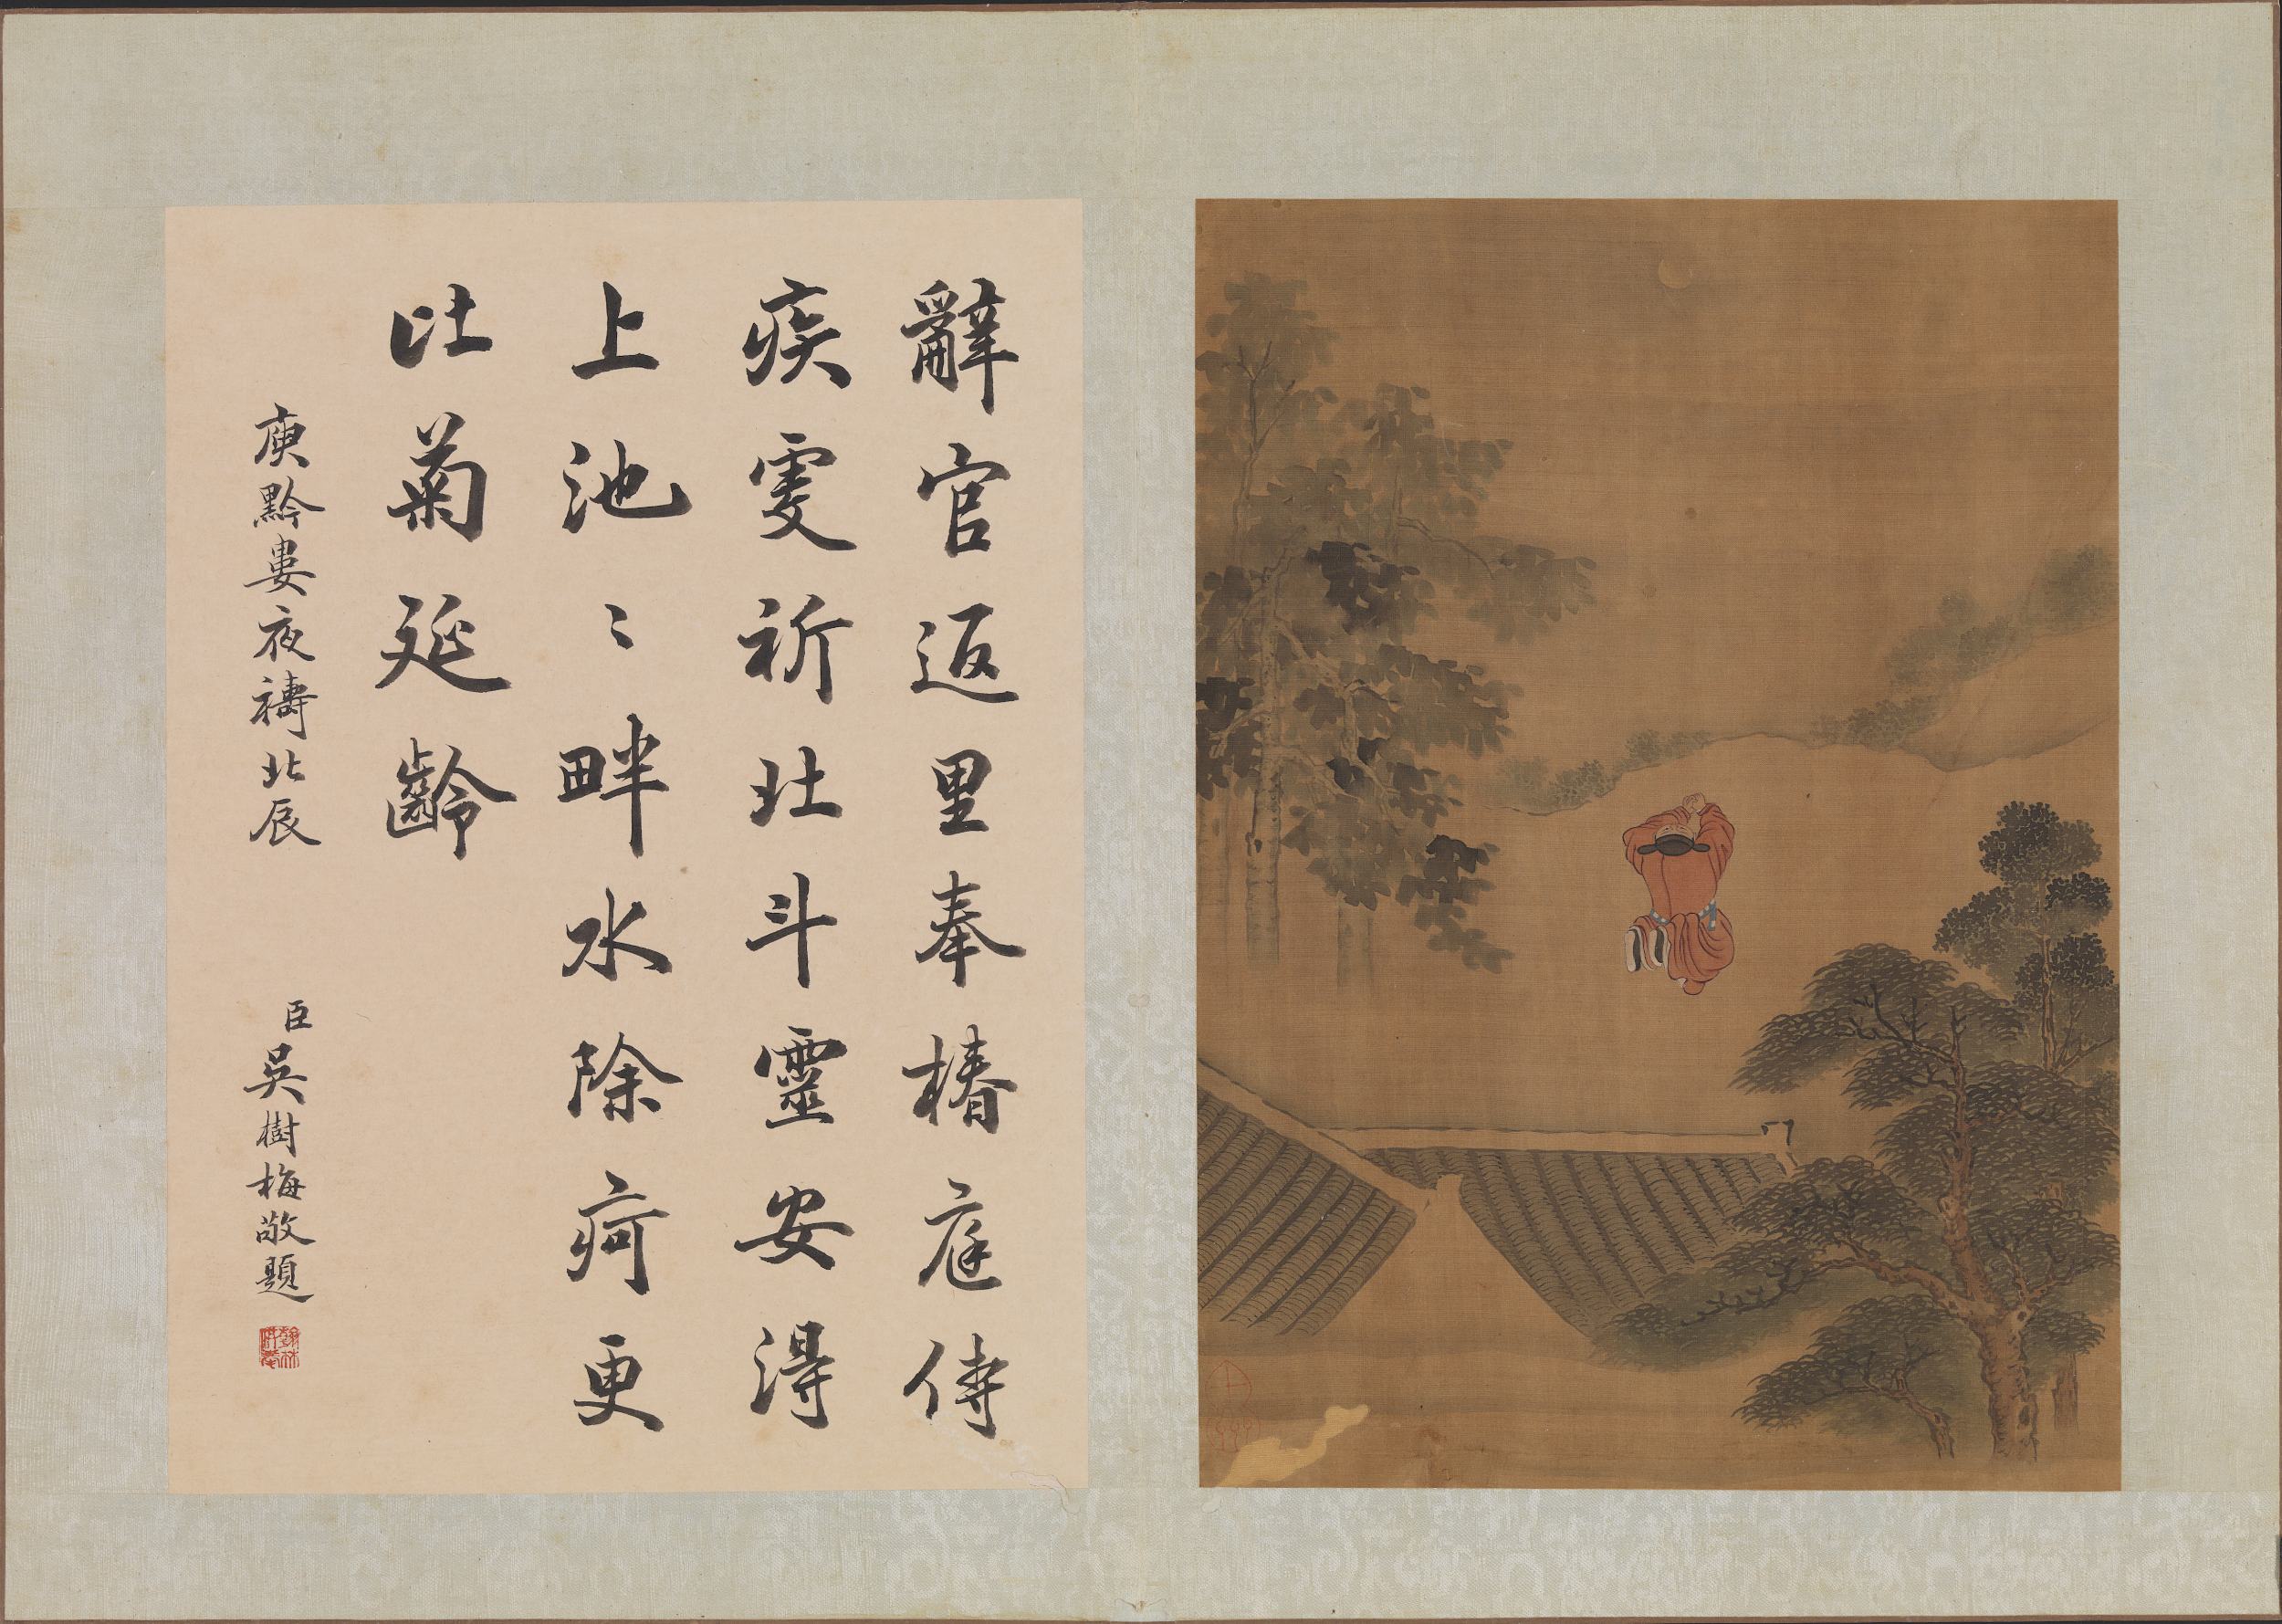 辭官返里奉椿庭侍
疾虔祈北斗靈安得
上池〻畔水除疴更
比菊延齡
庚黔婁夜禱北辰
臣吳樹梅敬題